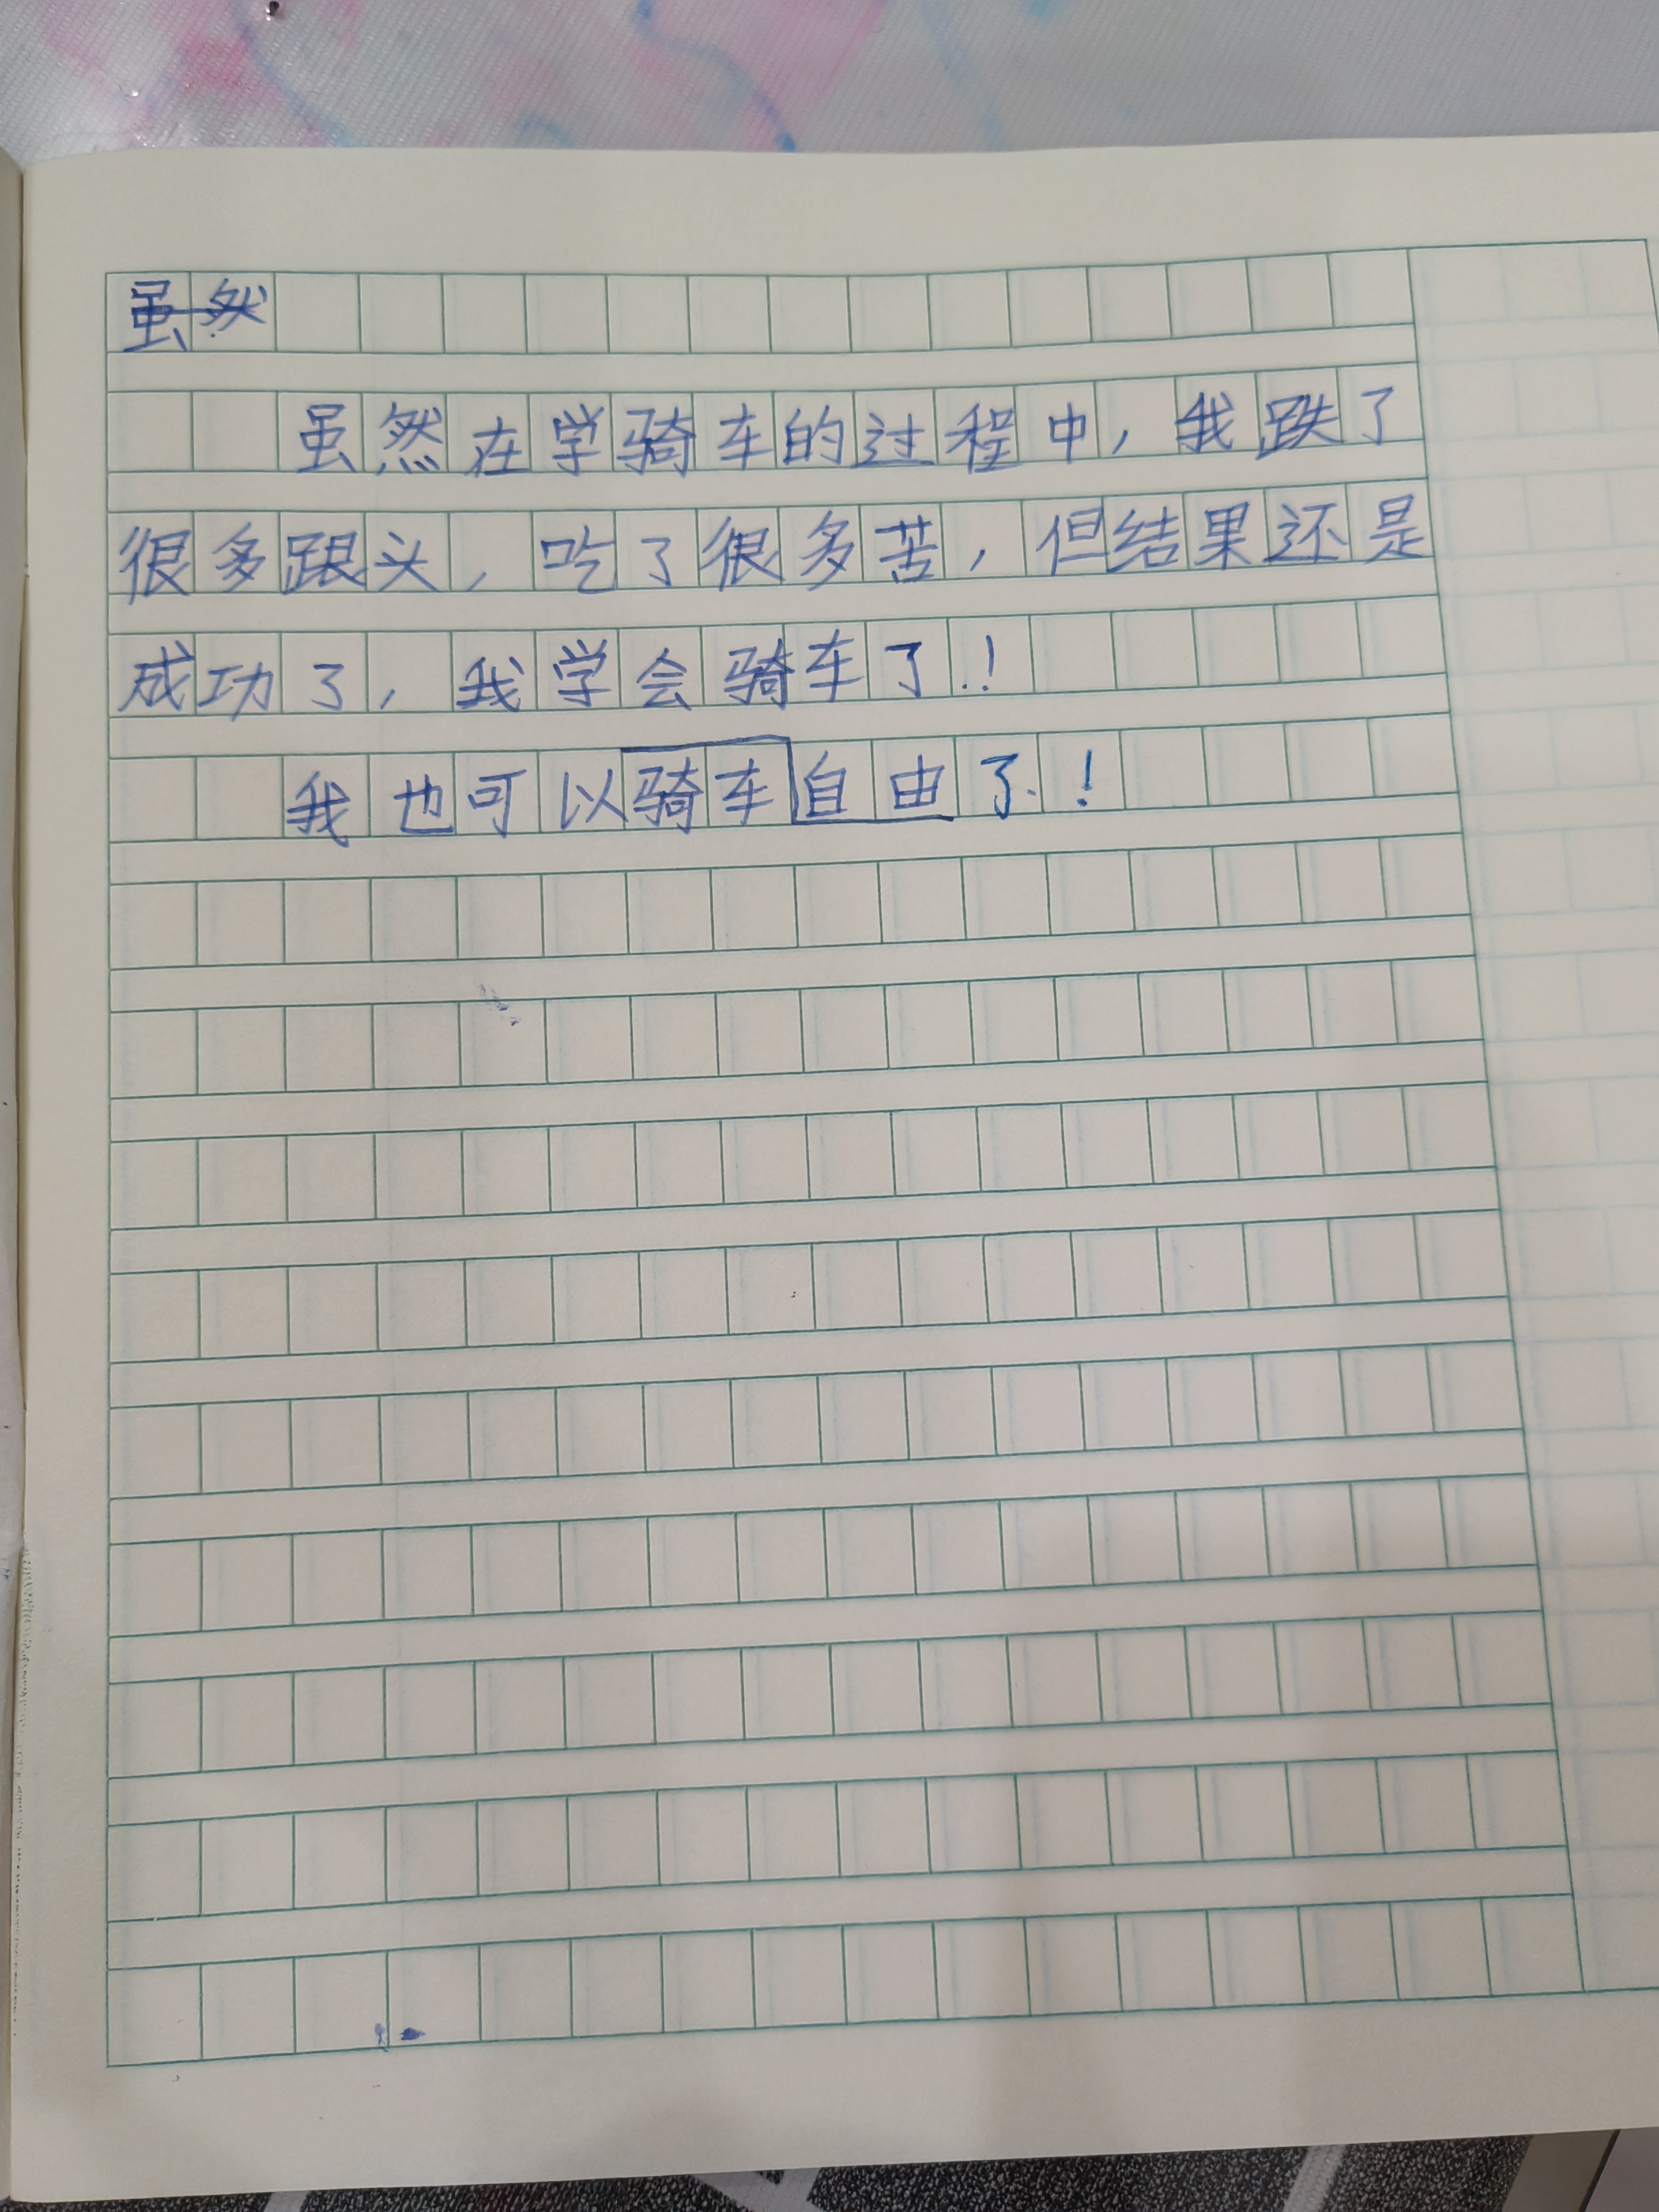 虽然
虽然在学骑车的过程中，我跌了
很多跟头，吃了很多苦，但结果还是
成功了，我学会骑车了.！
我也可以骑车自由了.！